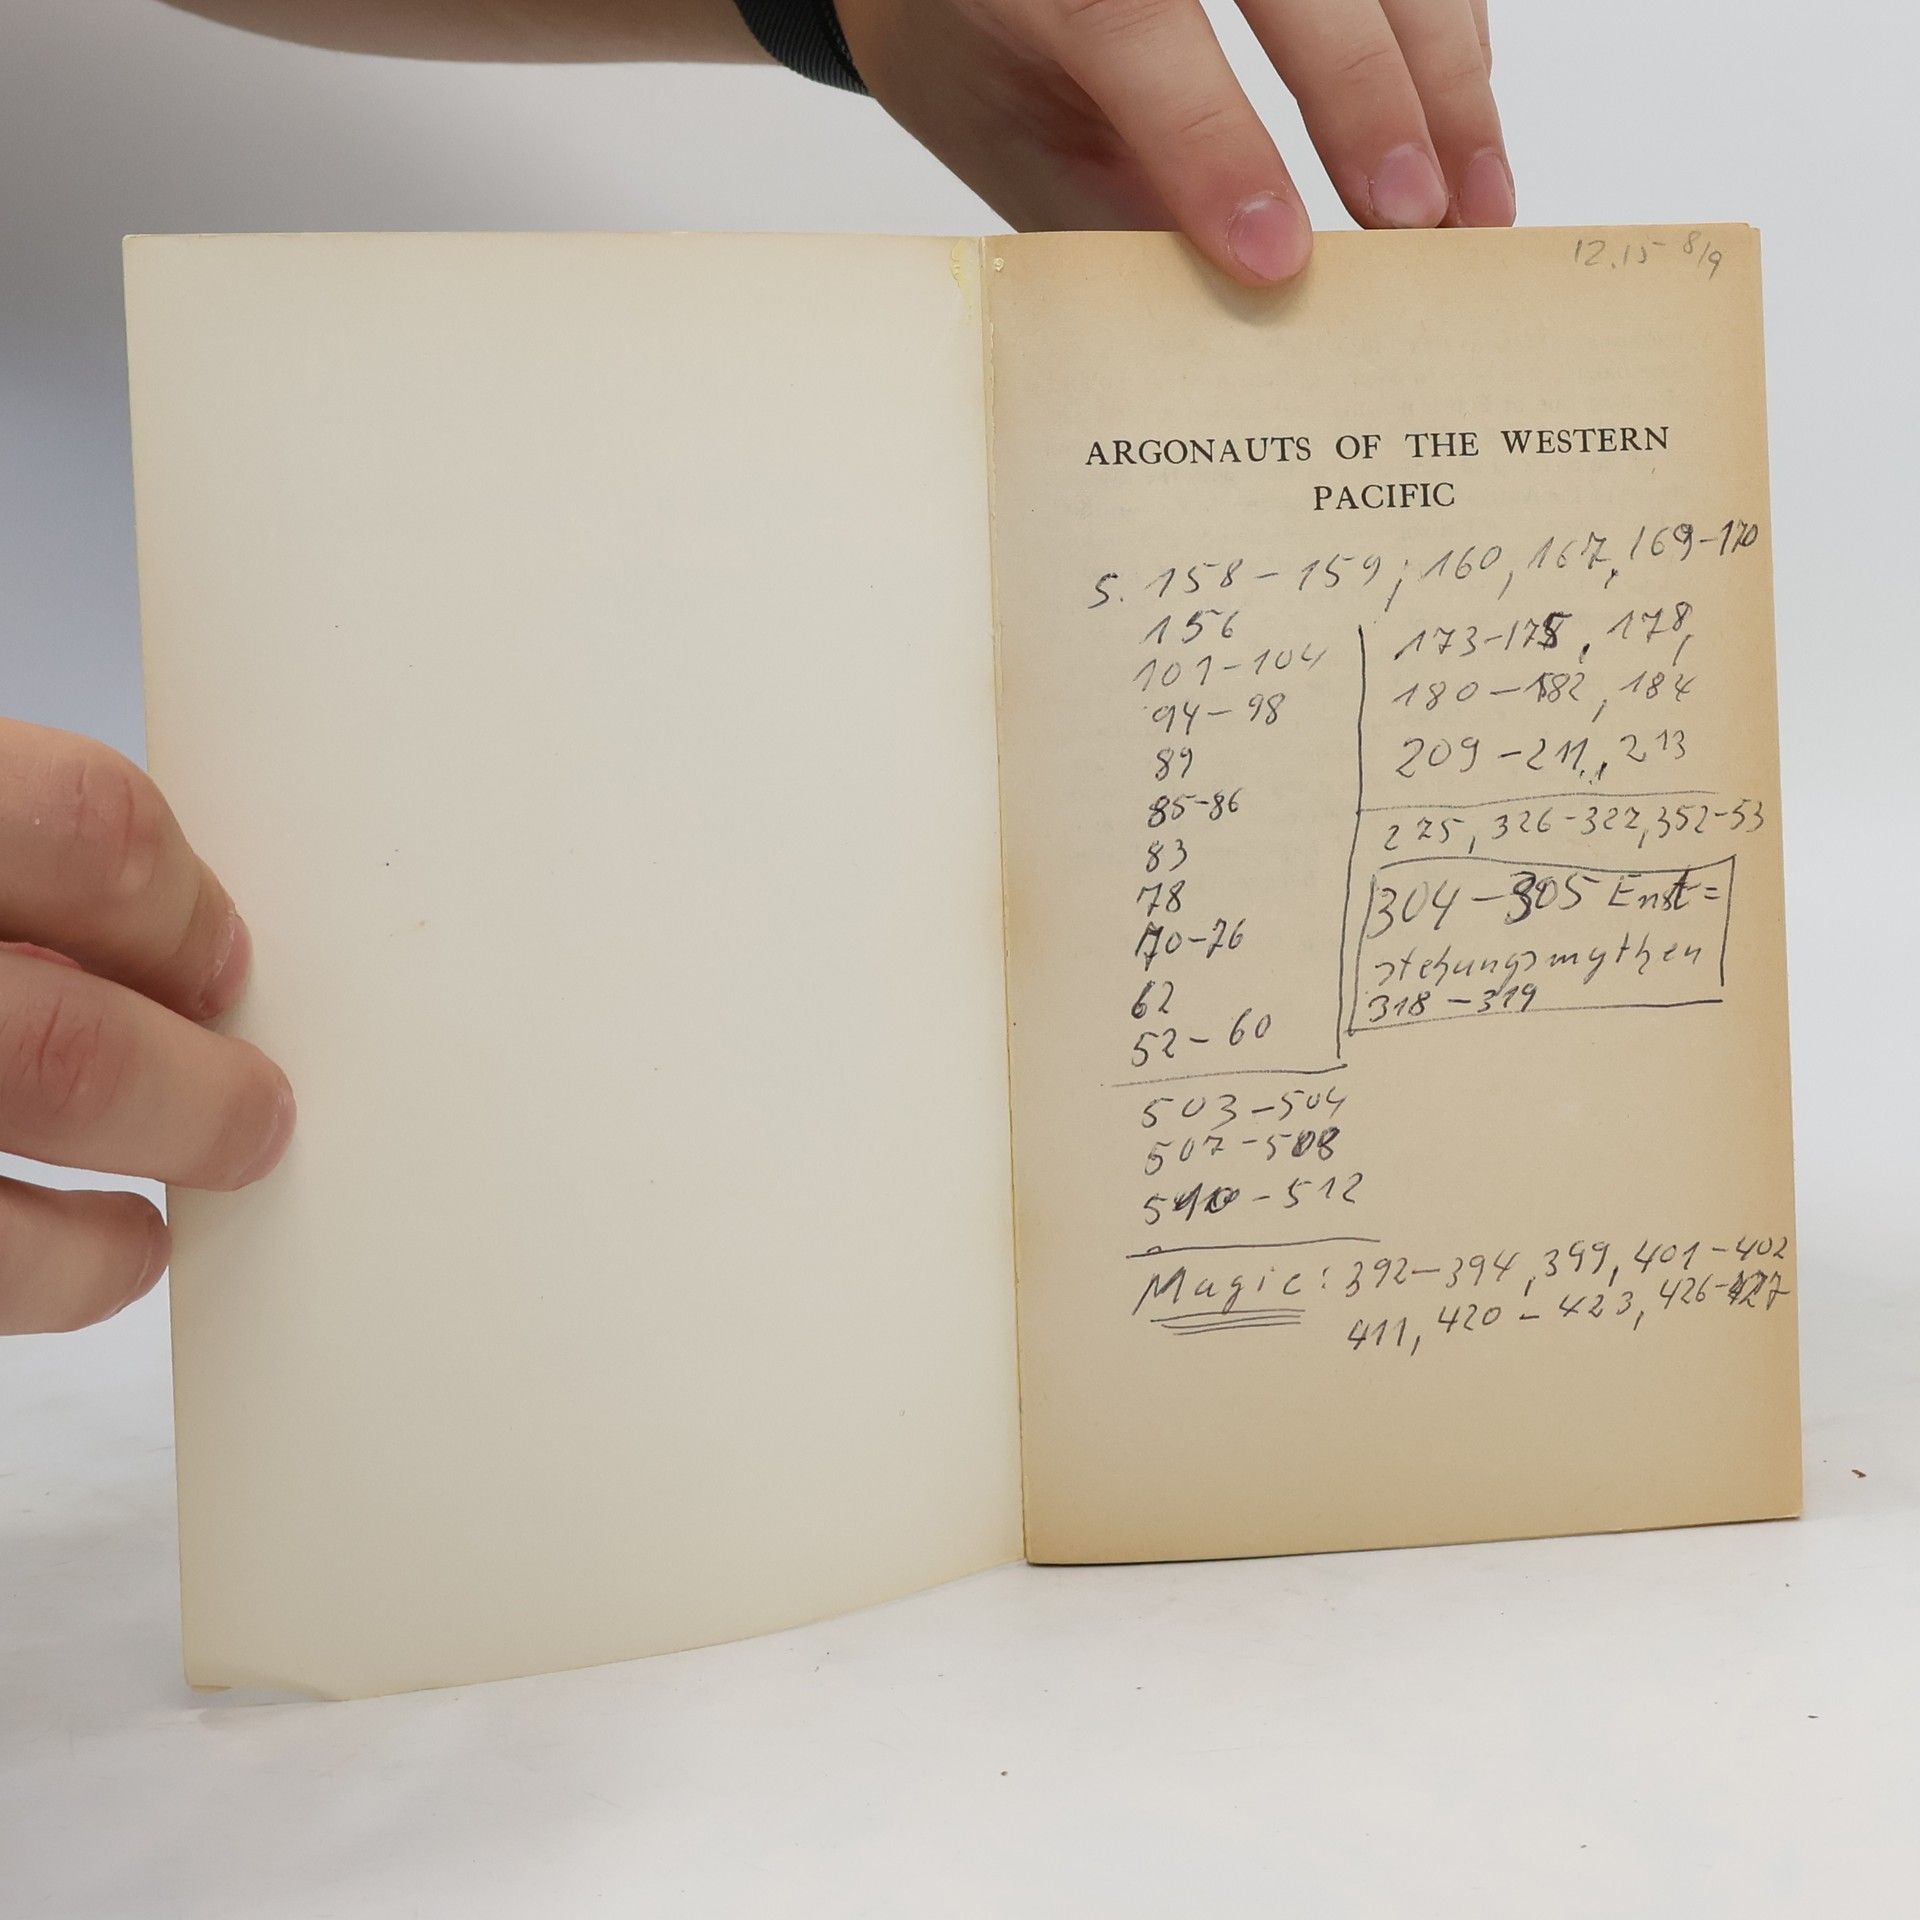 12.15 8/9
ARGONAUTS OF THE WESTERN
PACIFIC
S. 158-159; 160, 167, 169-170
156
101-104
94-98
89
85-86
83
78
70-76
62
52-60
173-175, 178,
180-182, 184
209-211, 213
275, 326-327, 352-53
304-305 Ent=
stehungsmythen
318-319
503-504
507-508
510-512
Magic: 392-394, 399, 401-402
411, 420-423, 426-427